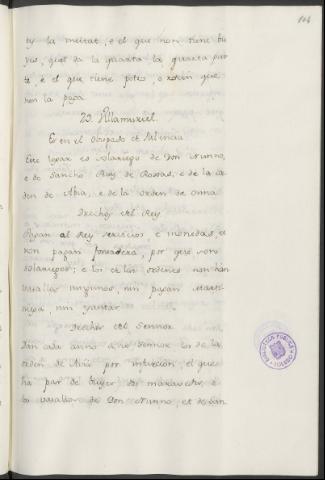 104
ty la meitat, e el que non tiene bu
yes, qual da la quarta la quarta par
te, e el que tiene potro, o rocin que
non la paga
29. Villamuriel.
Es en el Obispado de Palencia
Este logar es solariego de Don Nunno,
e de Sancho Ruy de Roxas, e de la or
den de Avia, e de la orden de onna
Drechos del Rey
Pagan al Rey servicios e monedas, e
non pagan fonsadera, por que son
solariegos; e los de las ordenes non han
vasallos ningunos, nin pagan Marti
niega, nin yantar
Drechos del Sennor
Dan cada anno a su Sennor los de la
orden de Avia por infurcion, el que
ha par de bueyes dos maravedis, e
los vasallos de Don Nunno, et de San
BIBLIOTECA PUBLICA
TOLEDO